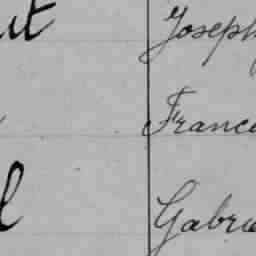 ut Joseph
France
l Gabrie